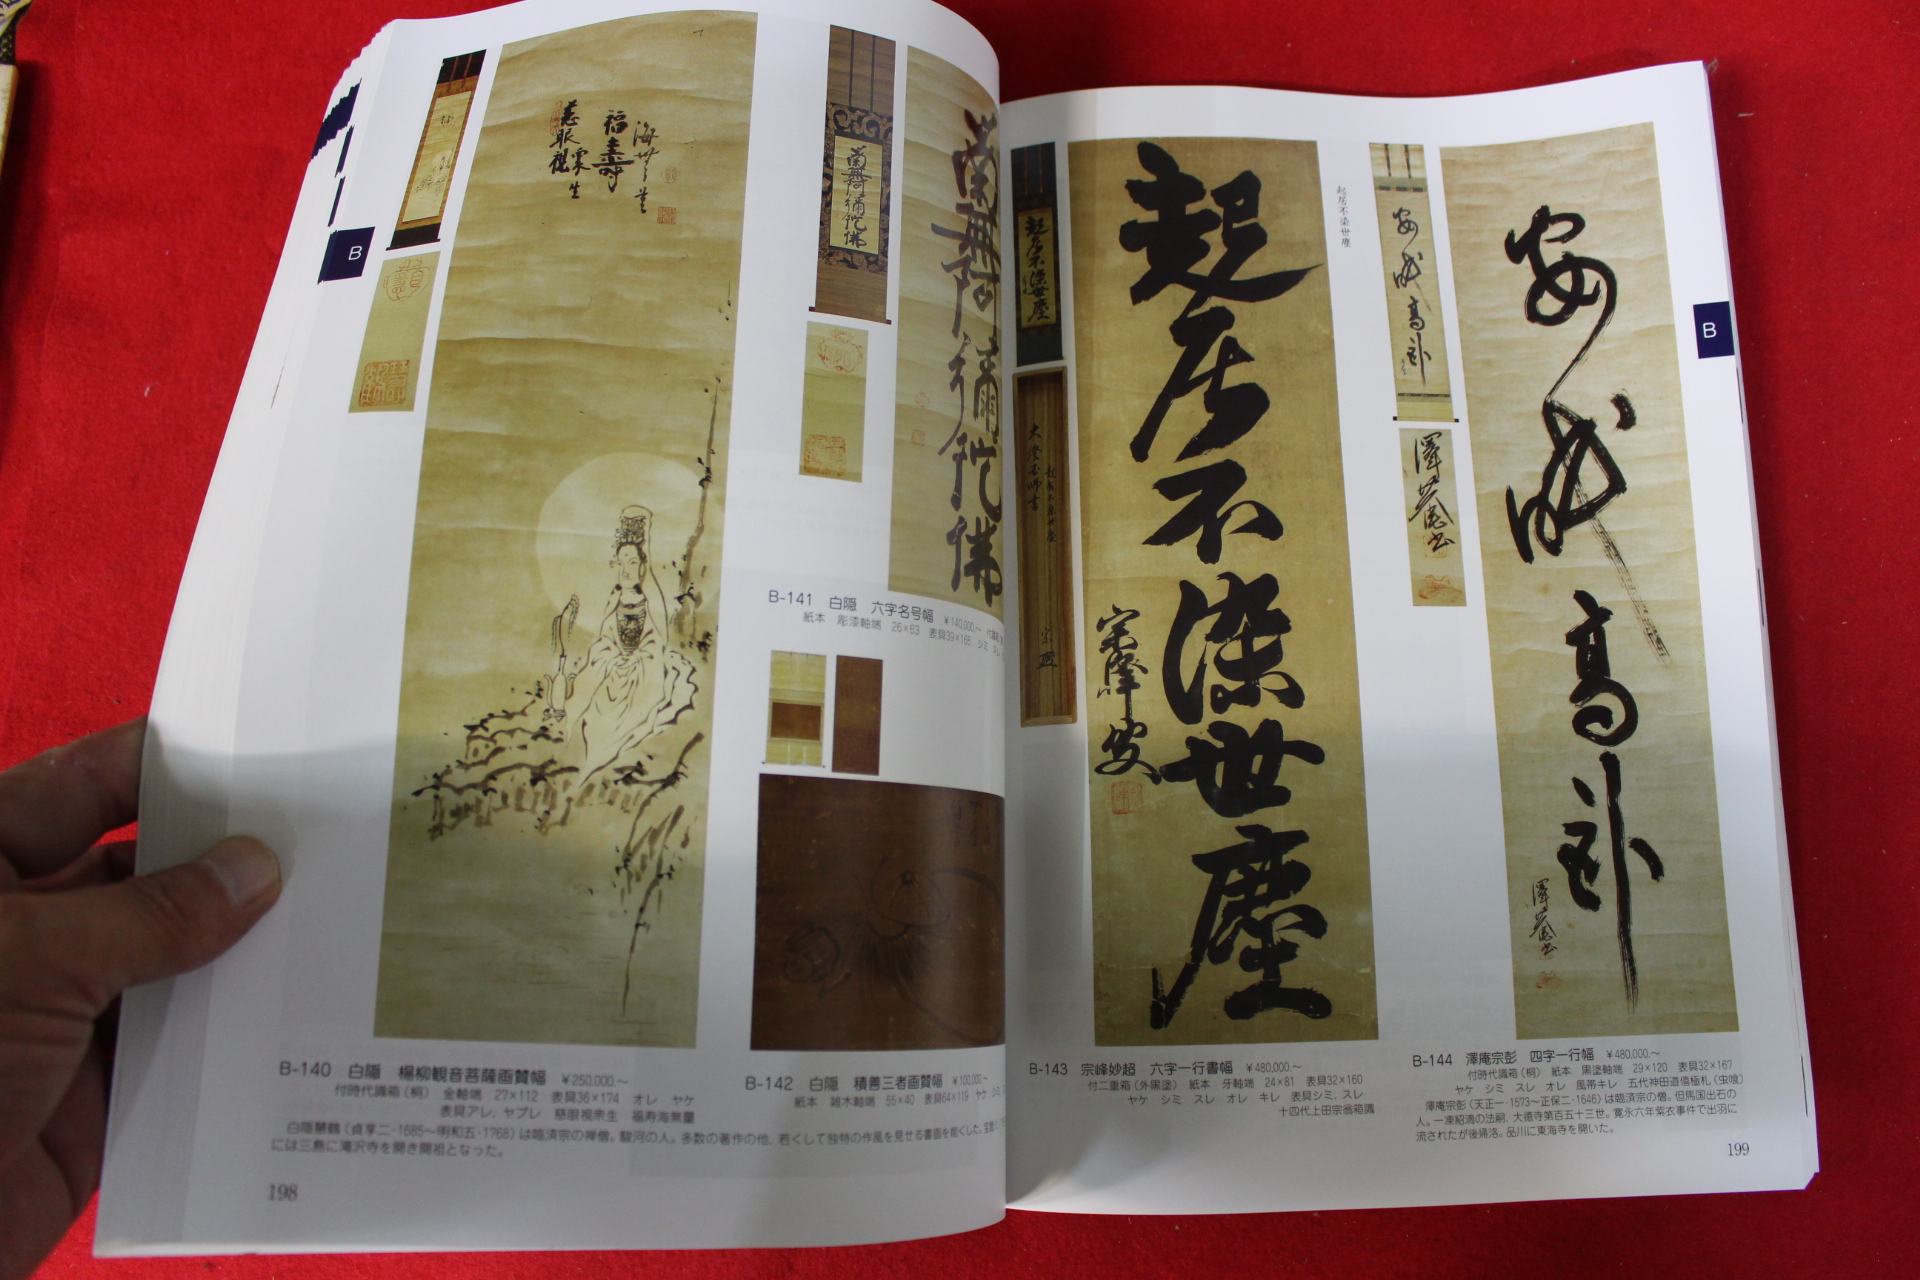 慈眼視
衆生
福寿
海無量
B
南無阿彌陀佛
南無阿彌陀佛
B-141 白隠 六字名号幅 ¥140,000.~
紙本 彫漆軸端 26×63 表具39×165 シミ スレ
B-140 白隠 楊柳観音菩薩画賛幅 ¥250,000.~
付時代識箱(桐) 金軸端 27×112 表具36×174 オレ ヤケ
表具アレ、ヤブレ 慈眼視衆生 福寿海無量
白隠慧鶴(貞享二・1685~明和五・1768)は臨済宗の禅僧。駿河の人。多数の著作の他、若くして独特の作風を見せる書画を能くした。
には三島に滝沢寺を開き開祖となった。
B-142 白隠 積善三者画賛幅 ¥100,000.~
紙本 雑木軸端 55×40 表具64×119 ヤケ
198
起居不染世塵
起居不染世塵
宗峰
起居不染世塵
大燈国師書
起居不染世塵
B-143 宗峰妙超 六字一行書幅 ¥480,000.~
付二重箱(外黒塗) 紙本 牙軸端 24×81 表具32×160
ヤケ シミ スレ オレ キレ 表具シミ、スレ
十四代上田宗翁箱識
澤菴書
澤菴書
B
B-144 澤庵宗彭 四字一行幅 ¥480,000.~
付時代識箱(桐) 紙本 黒塗軸端 29×120 表具32×167
ヤケ シミ スレ オレ 風帯キレ 五代神田道僖極札(虫喰)
澤庵宗彭(天正一・1573~正保二・1646)は臨済宗の僧。但馬国出石の
人。一凍紹滴の法嗣、大徳寺第百五十三世。寛永六年紫衣事件で出羽に
流されたが後帰洛。品川に東海寺を開いた。
199